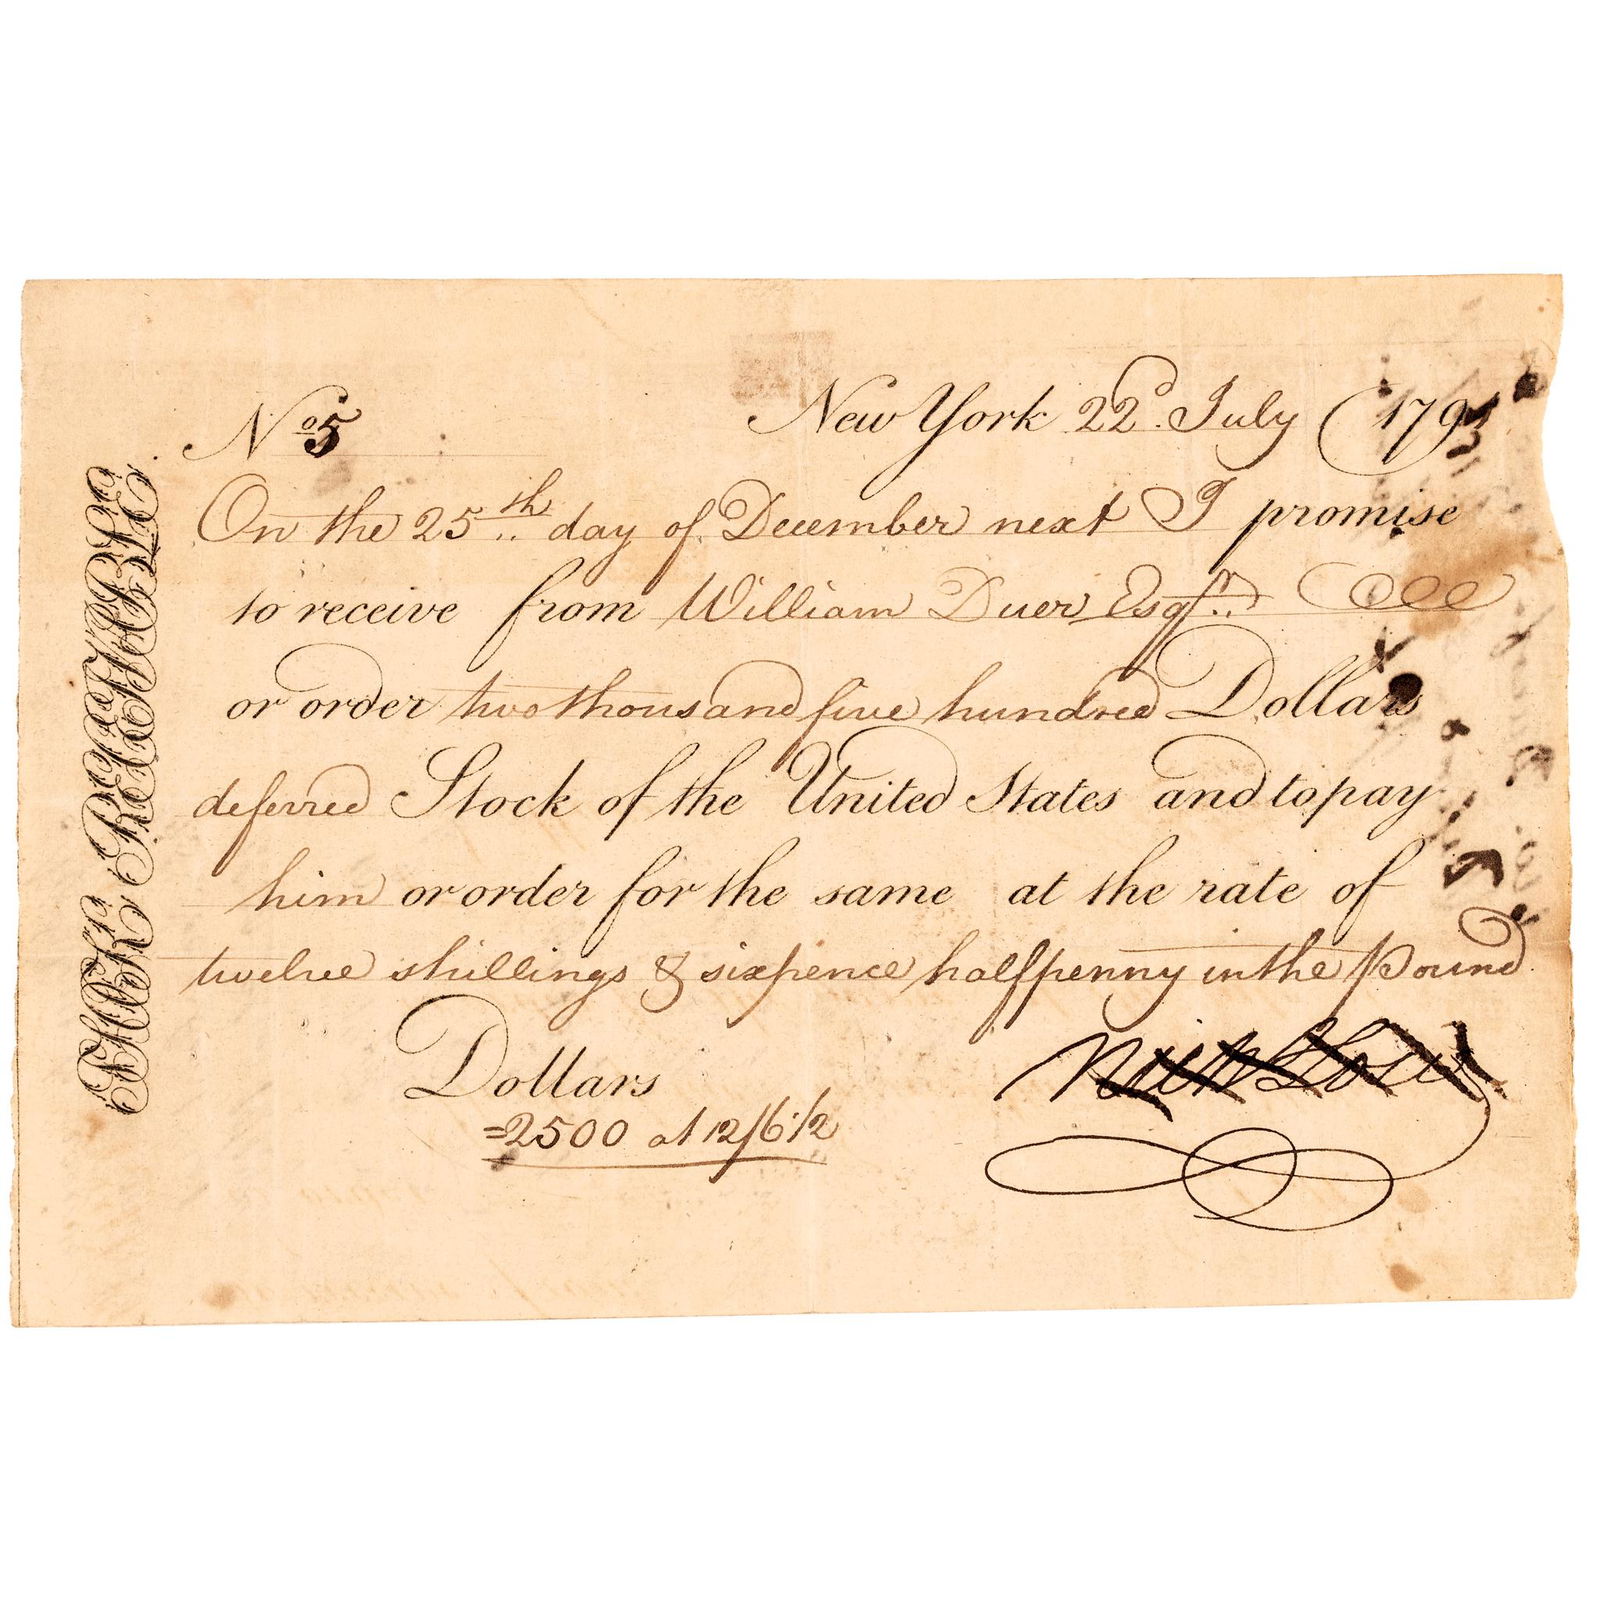 STOCK RECEIVABLE
No 5 New York 22d. July 1791
On the 25th day of December next I promise
to receive from William Duer Esqr.
or order two thousand five hundred Dollars
deferred Stock of the United States and to pay
him or order for the same at the rate of
twelve shillings & sixpence halfpenny in the Pound
Dollars
=2500 at 12/6 1/2
Nich Low